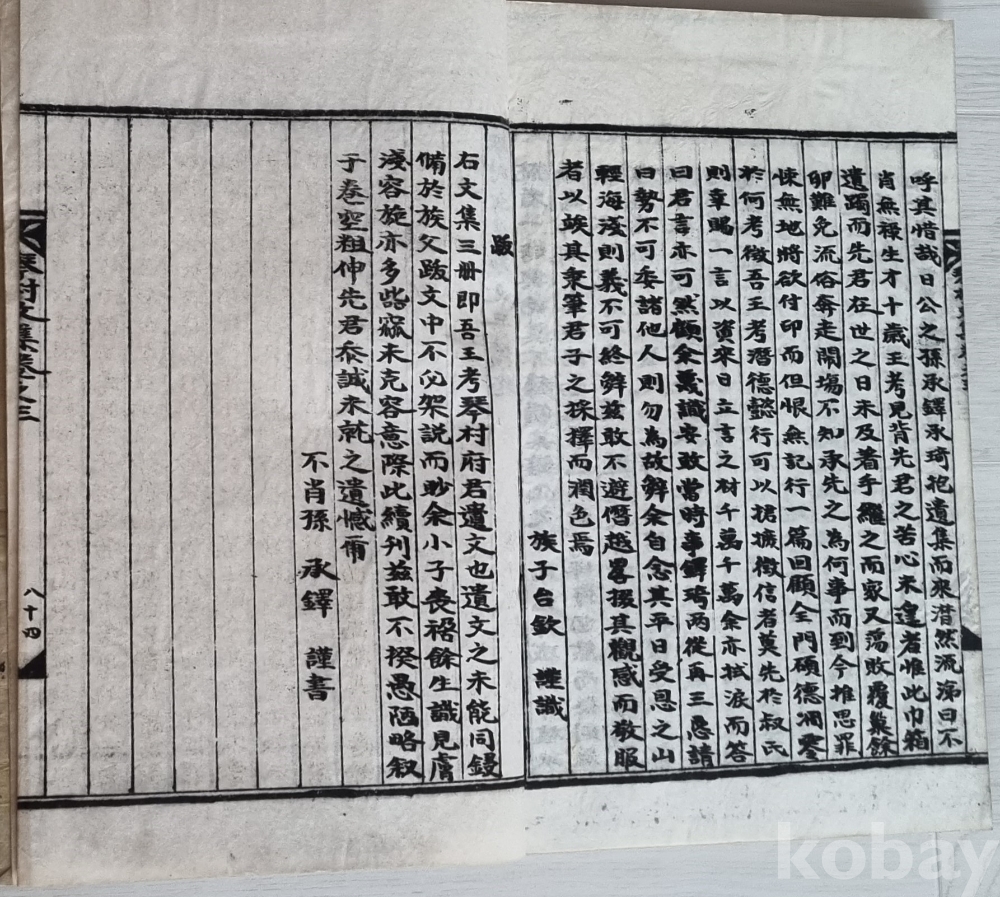 呼其惜哉日公之孫承鐸承琦抱遺集而來潸然流涕曰不
肖無祿生才十歲王考見背先君之苦心未遑者惟此巾箱
遺躅而先君在世之日未及著手繼之而家又蕩敗覆巢餘
卵難免流俗奔走鬧場不知承先之為何事而到今推思罪
悚無地將欲付印而但恨無記行一篇回顧全門碩德凋零
於何考徵吾王考潛德懿行可以捃摭徵信者莫先於叔氏
則幸賜一言以資來日立言之材千萬千萬余亦拭淚而答
曰君言亦可然顧余蔑識安敢當時事鐸琦两從再三恳請
曰勢不可委諸他人則勿為故辭余自念其平日受恩之山
輕海淺則義不可終辭玆敢不避僭越畧掇其觀感而敬服
者以竢其秉筆君子之採擇而潤色焉
族子台欽 謹識
跋
右文集三册即吾王考琴村府君遺文也遺文之未能同鋟
備於族父跋文中不必架說而眇余小子喪禍餘生識見膚
淺容旋亦多些窳未克容意際此續刊玆敢不揆愚陋略叙
于卷空粗伸先君忝誠未就之遺憾甭
不肖孫 承鐸 謹書
琴村文集卷之三
八十四
kobay